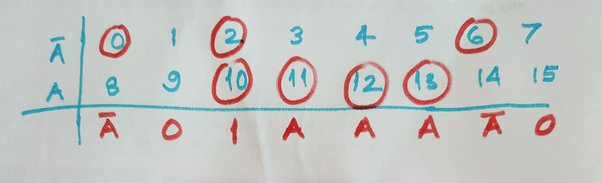 Ā 0 1 2 3 4 5 6 7
A 8 9 10 11 12 13 14 15
Ā 0 1 A A A Ā 0